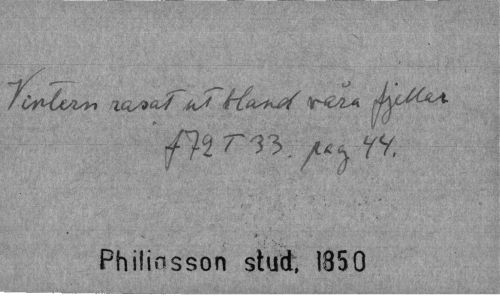 Vintern rasat ut bland våra fjellar
f72 T 33. pag 44.
Philiasson stud, 1850